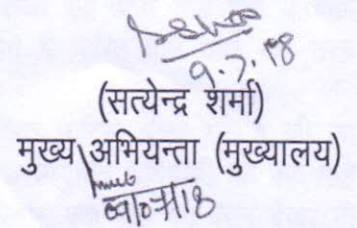 9.7.18
(सत्येन्द्र शर्मा)
मुख्य अभियन्ता (मुख्यालय)